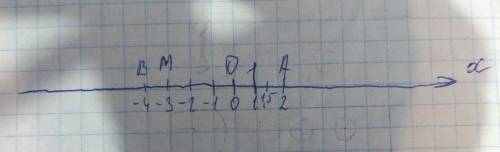 B M O 1 A
x
-4 -3 -2 -1 0 1 1,5 2